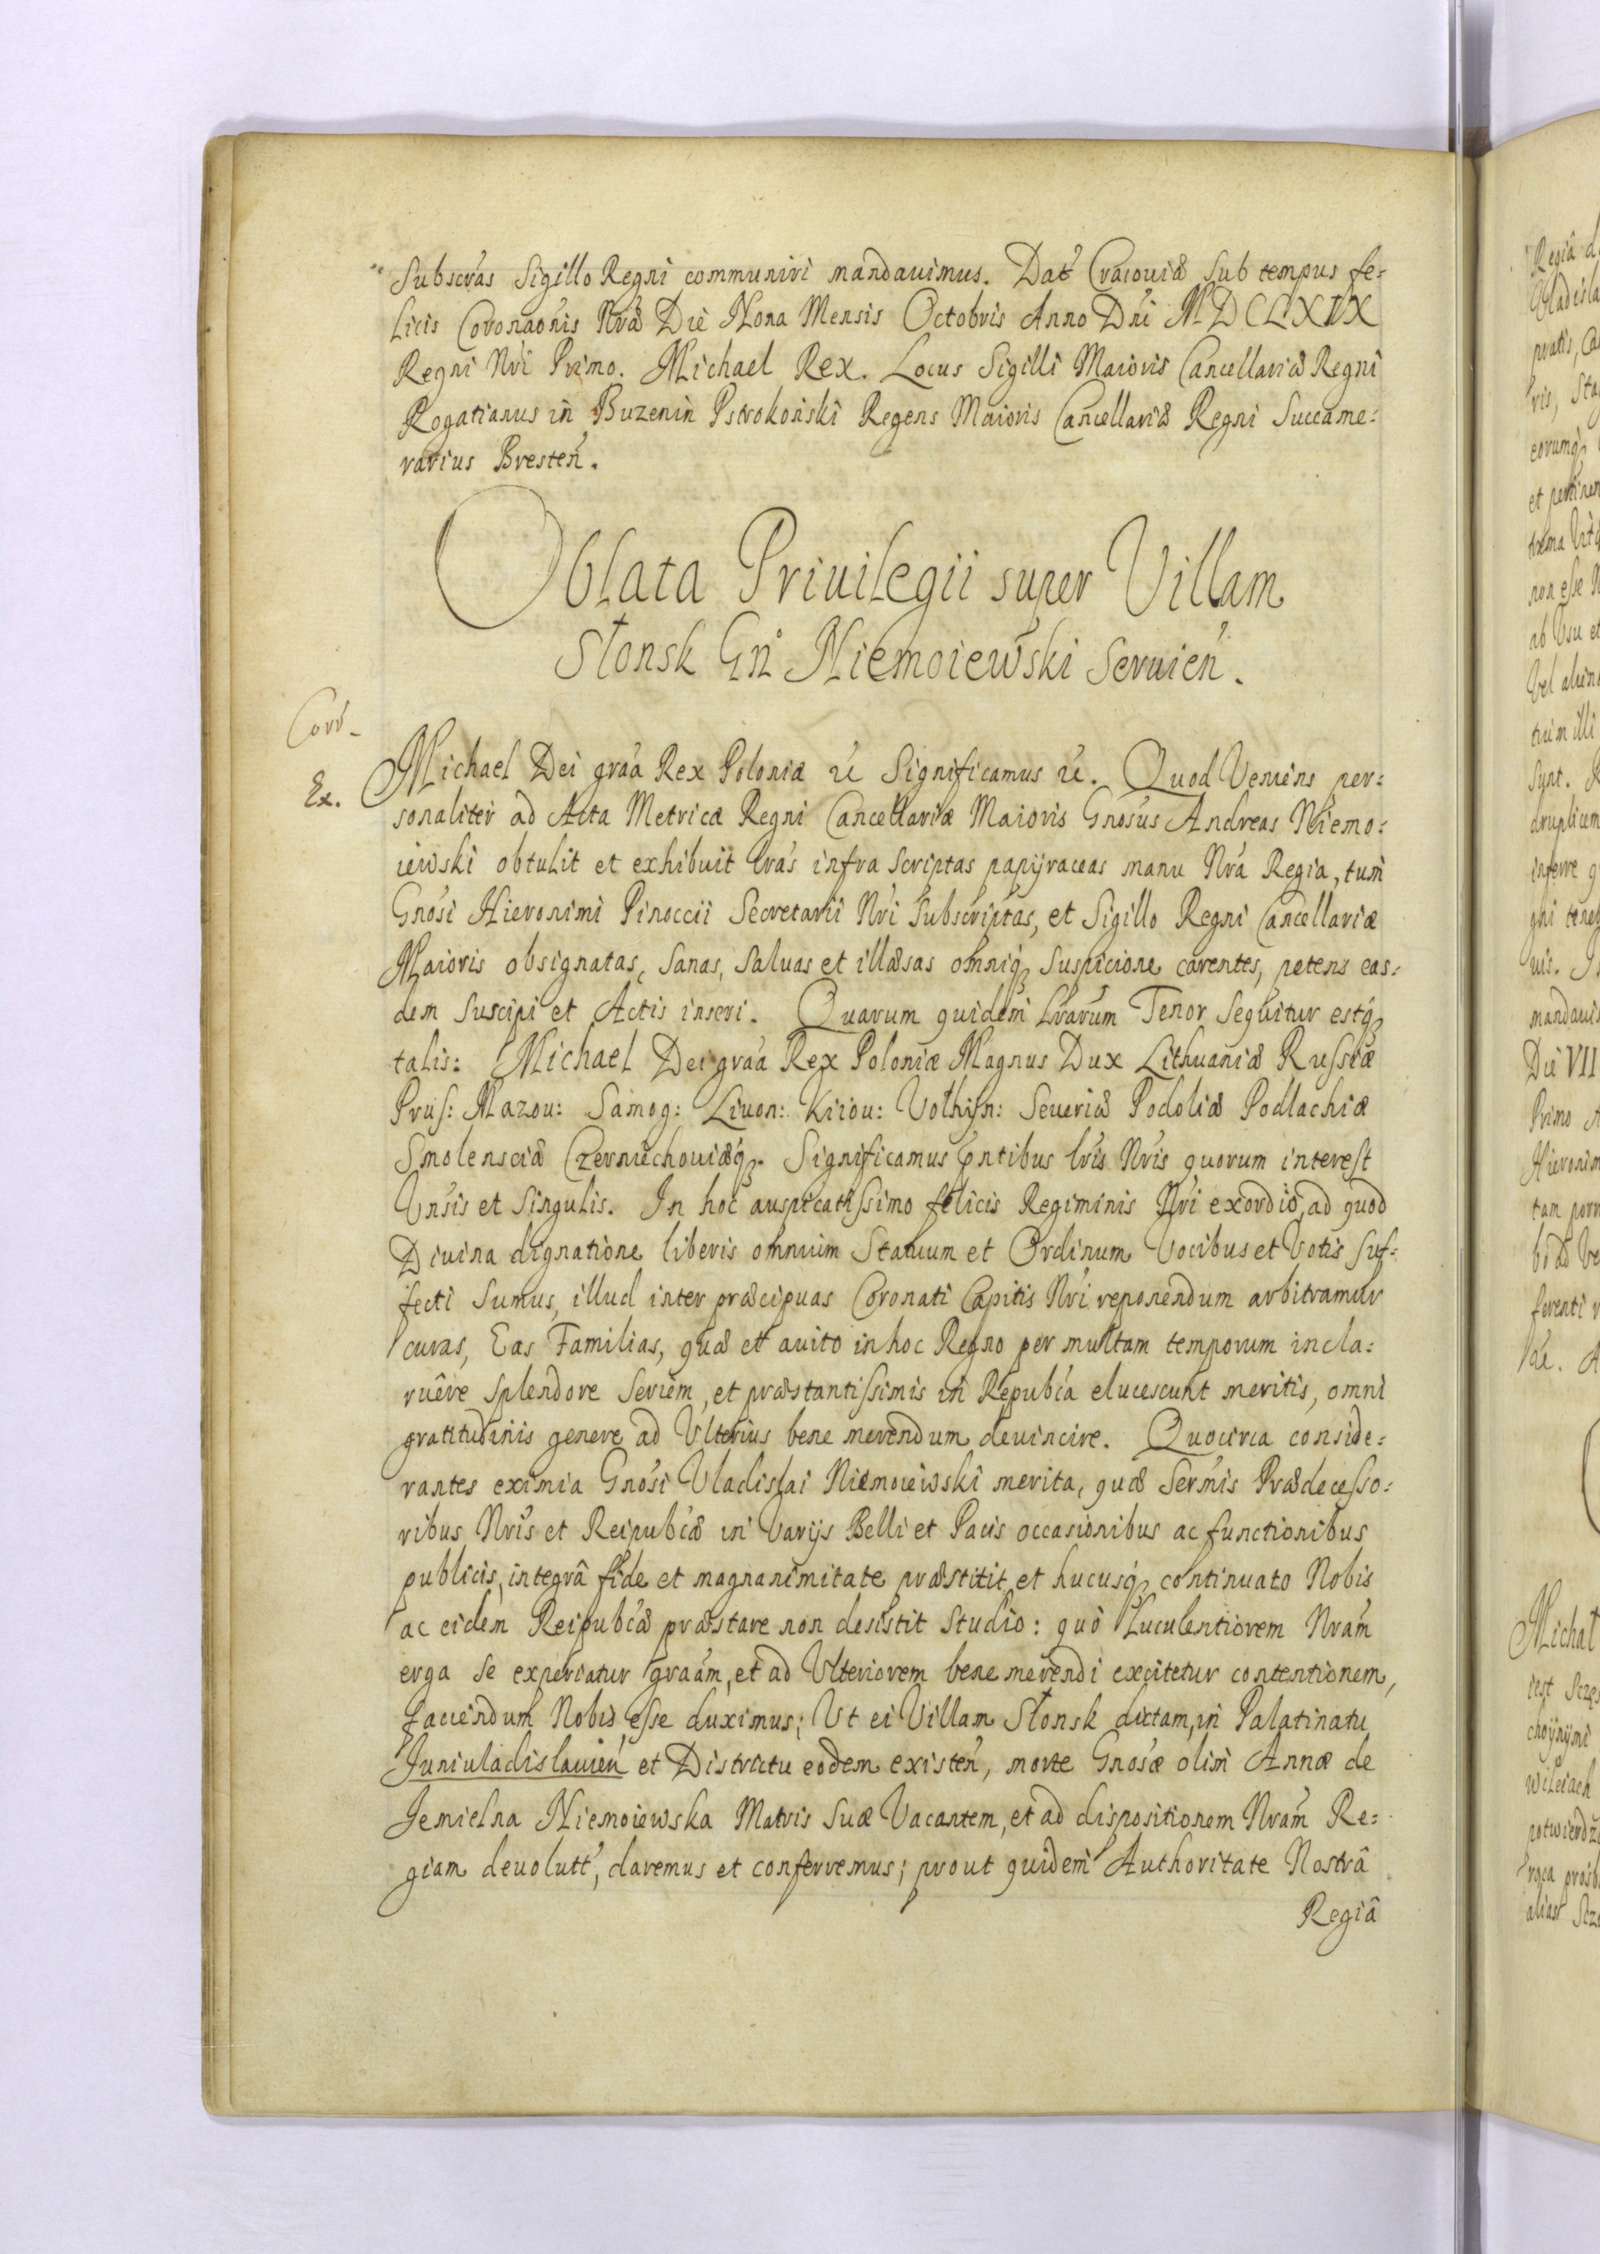 Subscr̃as Sigillo Regni communiri mandauimus. Dat̃ Cracouiæ Sub tempus fe=
licis Coronaõnis Nr̃æ Die Nona Mensis Octobris Anno Dñi MDCLXIX
Regni Nr̃i Primo. Michael Rex. Locus Sigilli Maioris Cancellariæ Regni
Rogatianus in Buzenin Pstrokoński Regens Maioris Cancellariæ Regni Succame=
rarius Bresteñ.
Oblata Priuilegii super Villam
Słonsk Gñ Niemoiewski Seruieñ.
Corr̃
Ex.
Michael Dei grãa Rex Poloniæ ꝛc̃ Significamus ꝛc̃. Quod Veniens per=
sonaliter ad Acta Metricæ Regni Cancellariæ Maioris Gnõsus Andreas Niemo=
iewski obtulit et exhibuit lrãs infra scriptas papyraceas manu Nrã Regia, tum
Gnõsi Hieronimi Pinoccii Secretarii Nr̃i Subscriptas, et Sigillo Regni Cancellariæ
Maioris obsignatas, Sanas, Saluas et illæsas omniq̃ Suspicione carentes, petens eas=
dem Suscipi et Actis inseri. Quarum quidem Lrãrum Tenor Sequitur estq̃
talis: Michael Dei grãa Rex Poloniæ Magnus Dux Lithuaniæ Russiæ
Prus: Mazou: Samog: Liuon: Kiiou: Volhyn: Seueriæ Podoliæ Podlachiæ
Smolensciæ Czerniechouiæq̃. Significamus p̃ntibus lr̃is Nr̃is quorum interest
Vñsis et Singulis. In hoc auspicatissimo felicis Regiminis Nr̃i exordio, ad quod
Diuina dignatione liberis omnium Statuum et Ordinum Vocibus et Votis Suf=
fecti Sumus, illud inter præcipuas Coronati Capitis Nr̃i reponendum arbitramur
curas, Eas Familias, quæ et auito in hoc Regno per multam temporum incla=
ruêre Splendore Seriem, et præstantissimis in Repubc̃a elucescunt meritis, omni
gratitudinis genere ad Vlterius bene merendum deuincire. Quocirca conside=
rantes eximia Gnõsi Vladislai Niemoiewski merita, quæ Serm̃is Prædecesso=
ribus Nr̃is et Reipubc̃æ in Varijs Belli et Pacis occasionibus ac functionibus
publicis, integrâ fide et magnanimitate præstitit et hucusq̃ continuato Nobis
ac eidem Reipubc̃æ præstare non desistit Studio: quò Luculentiorem Nrãm
erga Se experiatur grãam, et ad Vlteriorem bene merendi excitetur contentionem,
faciendum Nobis esse duximus; Vt ei Villam Słonsk dictam, in Palatinatu
Juniuladislauieñ et Districtu eodem existeñ, morte Gnõsæ olim Annæ de
Jemielna Niemoiewska Matris Suæ Vacantem, et ad dispositionem Nrãm Re=
giam deuolut̃, daremus et conferremus; prout quidem Authoritate Nostrâ
Regiâ